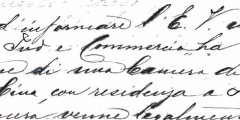 d'informare l'E. V.
Ind e Commercio ha
di una Camera di
con residenza a
venne legalmente